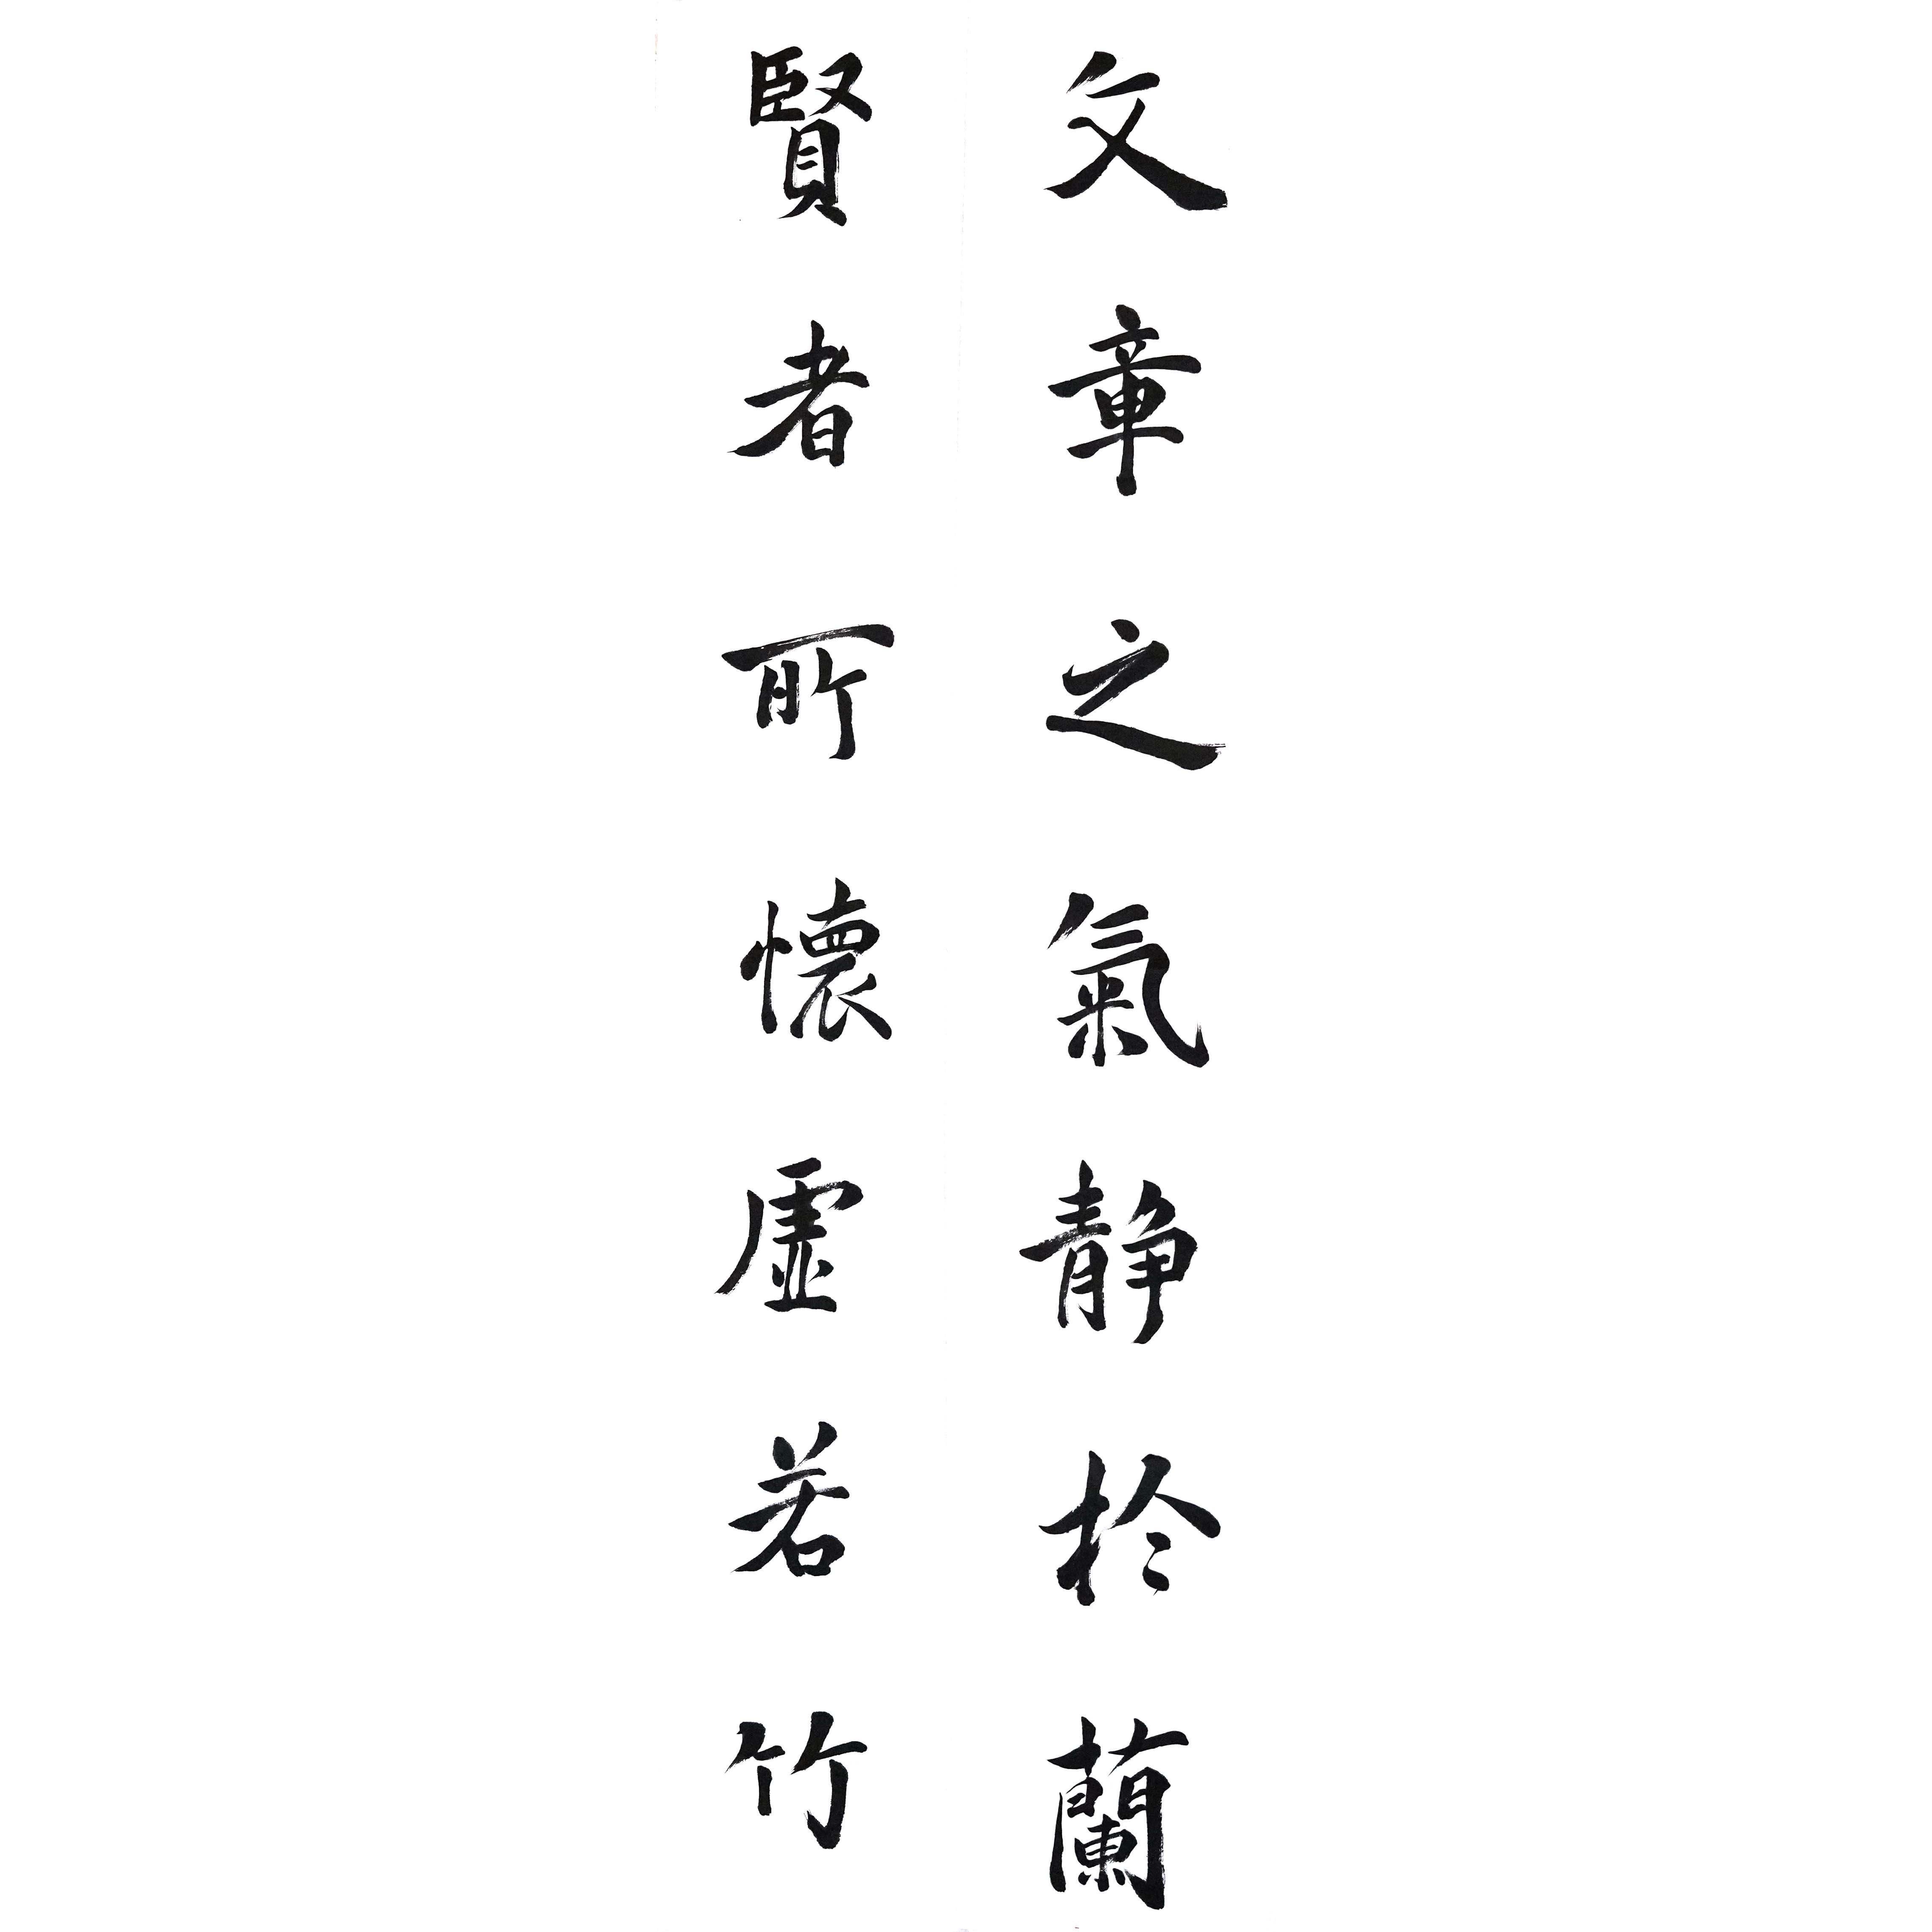 文章之氣静於蘭
賢者所懷虛若竹